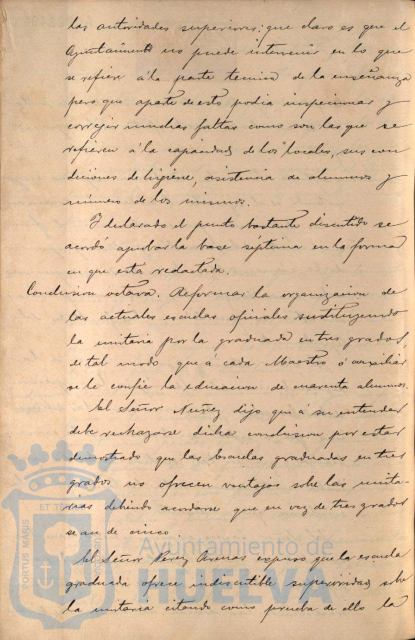 las autoridades superiores; que claro es que el
Ayuntamiento no puede intervenir en lo que
se refiere á la parte tecnica de la enseñanza
pero que aparte de esto podia inspeccionar y
corregir muchas faltas como son las que se
refieren á la capacidad de los locales, sus con
diciones de higiene, asistencia de alumnos y
número de los mismos.
Y declarado el punto bastante discutido se
acordó aprobar la base séptima en la forma
en que esta redactada.
Conclusion octava. Reformar la organizacion de
las actuales escuelas oficiales sustituyendo
la unitaria por la graduada en tres grados,
de tal modo que á cada Maestro ó auxiliar
se le confie la educacion de cuarenta alumnos.
El Señor Nuñez dijo que á su entender
debe rechazarse dicha conclusion por estar
demostrado que las Escuelas graduadas en tres
grados no ofrecen ventajas sobre las unita-
rias debiendo acordarse que en vez de tres grados
sean de cinco.
El Señor Perez Arenas expuso que la escuela
graduada ofrece indiscutible superioridad sobre
la unitaria citando como prueba de ello la
PORTUS MARIS
ET TE
Ayuntamiento de
HUELVA